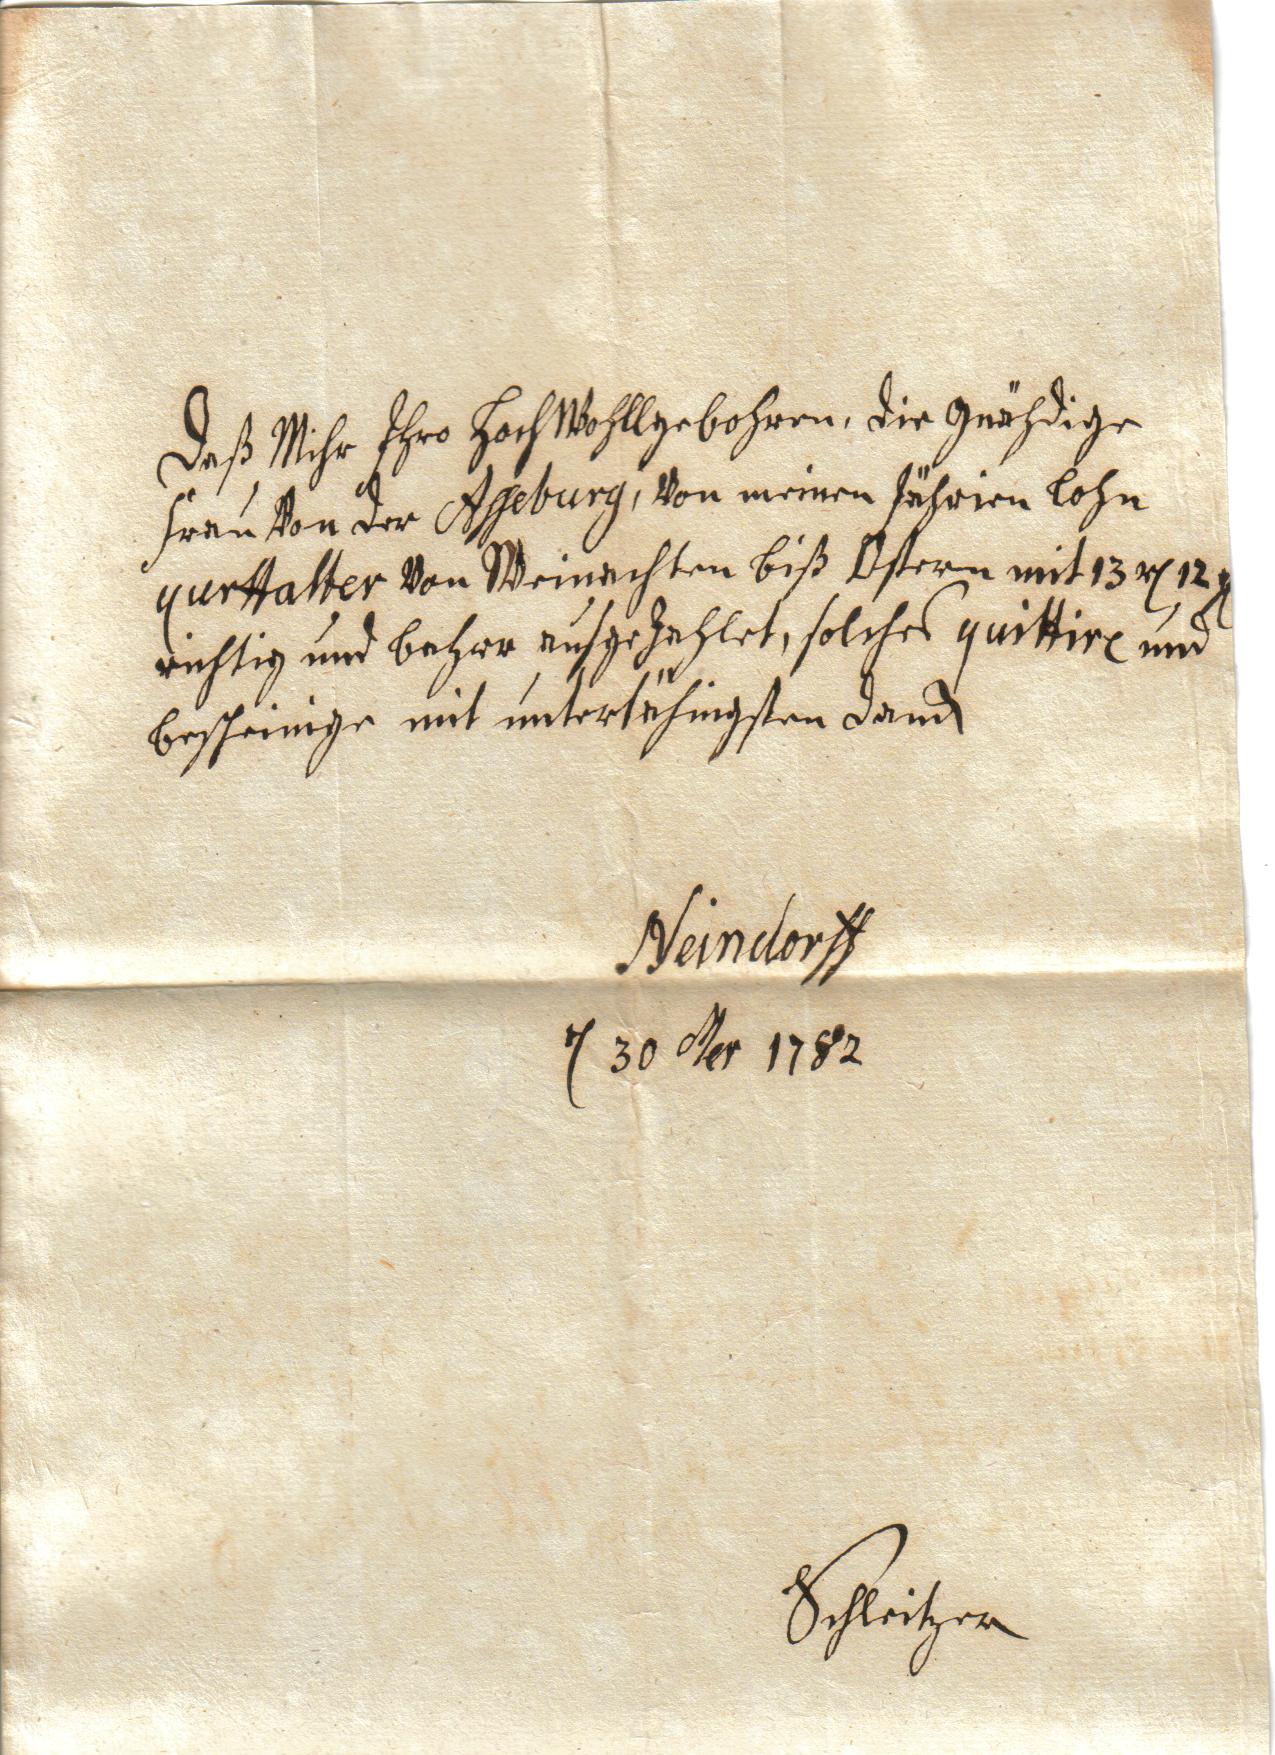 Daß Mihr Ihro HochWohllgebohren, die Gnähdige
Frau Von der Asseburg, Von meinen Jährien Lohn
qurttalter Von Weinachten biß Ostern mit 13 rh 12 g
richtig und bahrr ausgezahlet, solches quittire und
bescheinige mit untertähingsten Danck
Neindorff
30 Mer 1782
Schleitzer